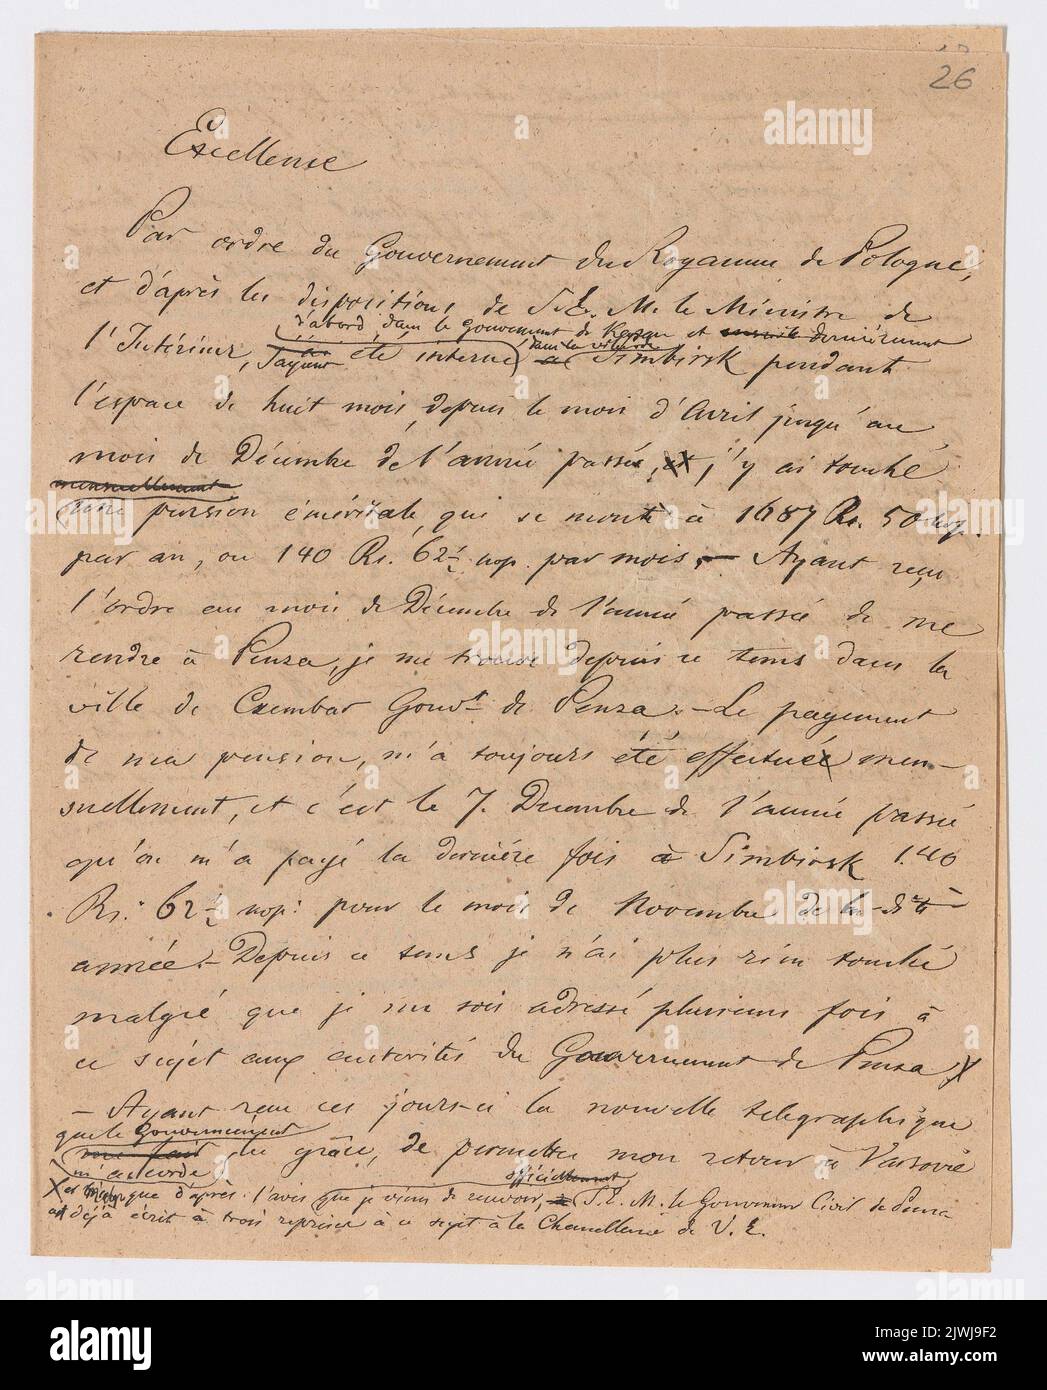 26
Excellense
Par ordre du Gouvernement du Royaume de Pologne,
et d'après les dispositions de S. E. M. le Ministre de
d'abord, dans le gouvernement de et dernièrement
l'Intérieur, j'ayant été interné dans la ville de Simbirsk pendant
l'espace de huit mois, depuis le mois d'Avril jusqu'au
mois de Décembre de l'année passée, j'y ai touché
mensuellement
une pension éméritale, qui se monte à 1687 Rs. 50 kop.
par an, ou 140 Rs. 62½ kop. par mois, — Ayant reçu
l'ordre au mois de Décembre de l'année passée de me
rendre à Penza, je me trouve depuis ce tems dans la
ville de Czembar Gouvt de Penza. — Le payement
de ma pension, m'a toujours été effectué men-
suellement, et c'est le 7. Decembre de l'année passée
qu'on m'a payé la dernière fois à Simbirsk 140
Rs. 62½ kop: pour le mois de Novembre de la dite
année. — Depuis ce tems je n'ai plus rien touché
malgré que je me sois adressé plusieurs fois à
ce sujet aux autorités du Gouvernement de Penza X
— Ayant reçu ces jours-ci la nouvelle telegraphique
que le Gouvernement
me fait la grâce, de permettre mon retour à Varsovie
m'accorde officiellement
X et que d'après l'avis que je viens de recevoir, S. E. M. le Gouverneur Civil de Penza
a déjà écrit à trois reprises à ce sujet à la Chancellerie de V. E.
alamy
a
alamy
Image ID: 2WJ9F2
www.alamy.com